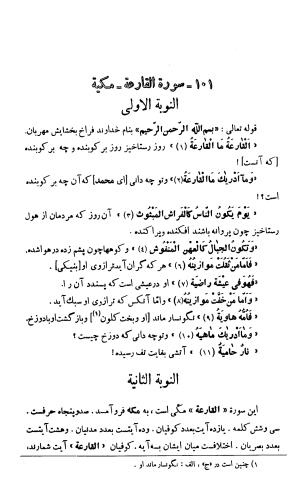 ۱۰۱ - سورة القارعة - مكية
النوبة الاولی
قوله تعالی : «بسم‌الله الرحمن الرحیم» بنام خداوند فراخ بخشایش مهربان.
«الْقارِعَةُ مَا الْقارِعَةُ (۱)» روز رستاخیز روز بر کوبنده و چه بر کوبنده
[که آنست] !
«وَما أَدْریكَ مَا الْقارِعَةُ(۲)» و تو چه دانی [ای محمد] که آن چه بر کوبنده
است ؟
«یَوْمَ یَكُونُ النّاسُ كَالْفَراشِ الْمَبْثُوثِ (۳)» آن روز که مردمان از هول
رستاخیز چون پروانه باشند افکنده و پراکنده .
«وَتَكُونُ الْجِبالُ كَالْعِهْنِ الْمَنْفُوشِ (۴)» و کوهها چون پشم زده در هوا شده.
«فَأَمّا مَنْ ثَقُلَتْ مَوازینُهُ (۶)» هر که گران آید ترازوی او [بنیکی] .
«فَهُوَ فی عیشَةٍ راضِیَةٍ (۷)» او در عیشی است که پسندد آن را .
«وَأَمّا مَنْ خَفَّتْ مَوازینُهُ(۸)» و امّا آنکس که ترازوی او سبک آید .
«فَأُمُّهُ هاوِیَةٌ (۹)» نگوسار ماند [او و بخت کلون](۱) و باز گشت او با دوزخ .
«وَما أَدْریكَ ماهِیَهْ (۱۰)» و تو چه دانی که دوزخ چیست ؟
«نارٌ حامِیَةٌ (۱۱)» آتشی بغایت تف رسیده !
النوبة الثانیة
این سورة «القارعة» مکّی است ، به مکّه فرو آمد . صد و پنجاه حرفست .
سی و شش کلمه . یازده آیت بعدد کوفیان . و ده آیتست بعدد مدنیان . و هشت آیتست
بعدد بصریان . اختلافست میان ایشان بسه آیه . کوفیان «القارعة» آیت شمارند،
۱) چنین است در «ج» ، الف : نگوسار ماند او .